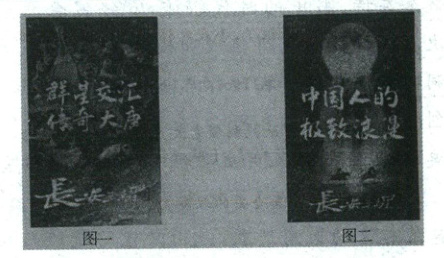 群星交汇
传奇大唐
長安三万里
图一
中国人的
极致浪漫
長安三万里
图二